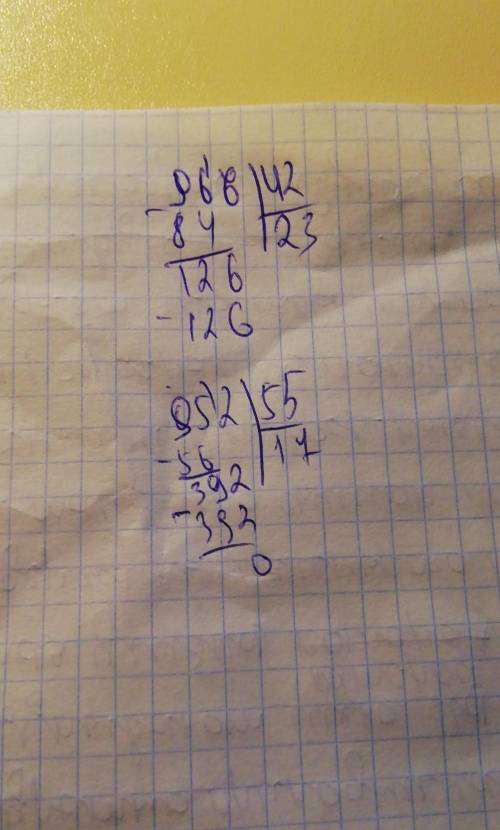 966 42
- 84 23
126
- 126
952 55
- 56 17
392
- 392
0